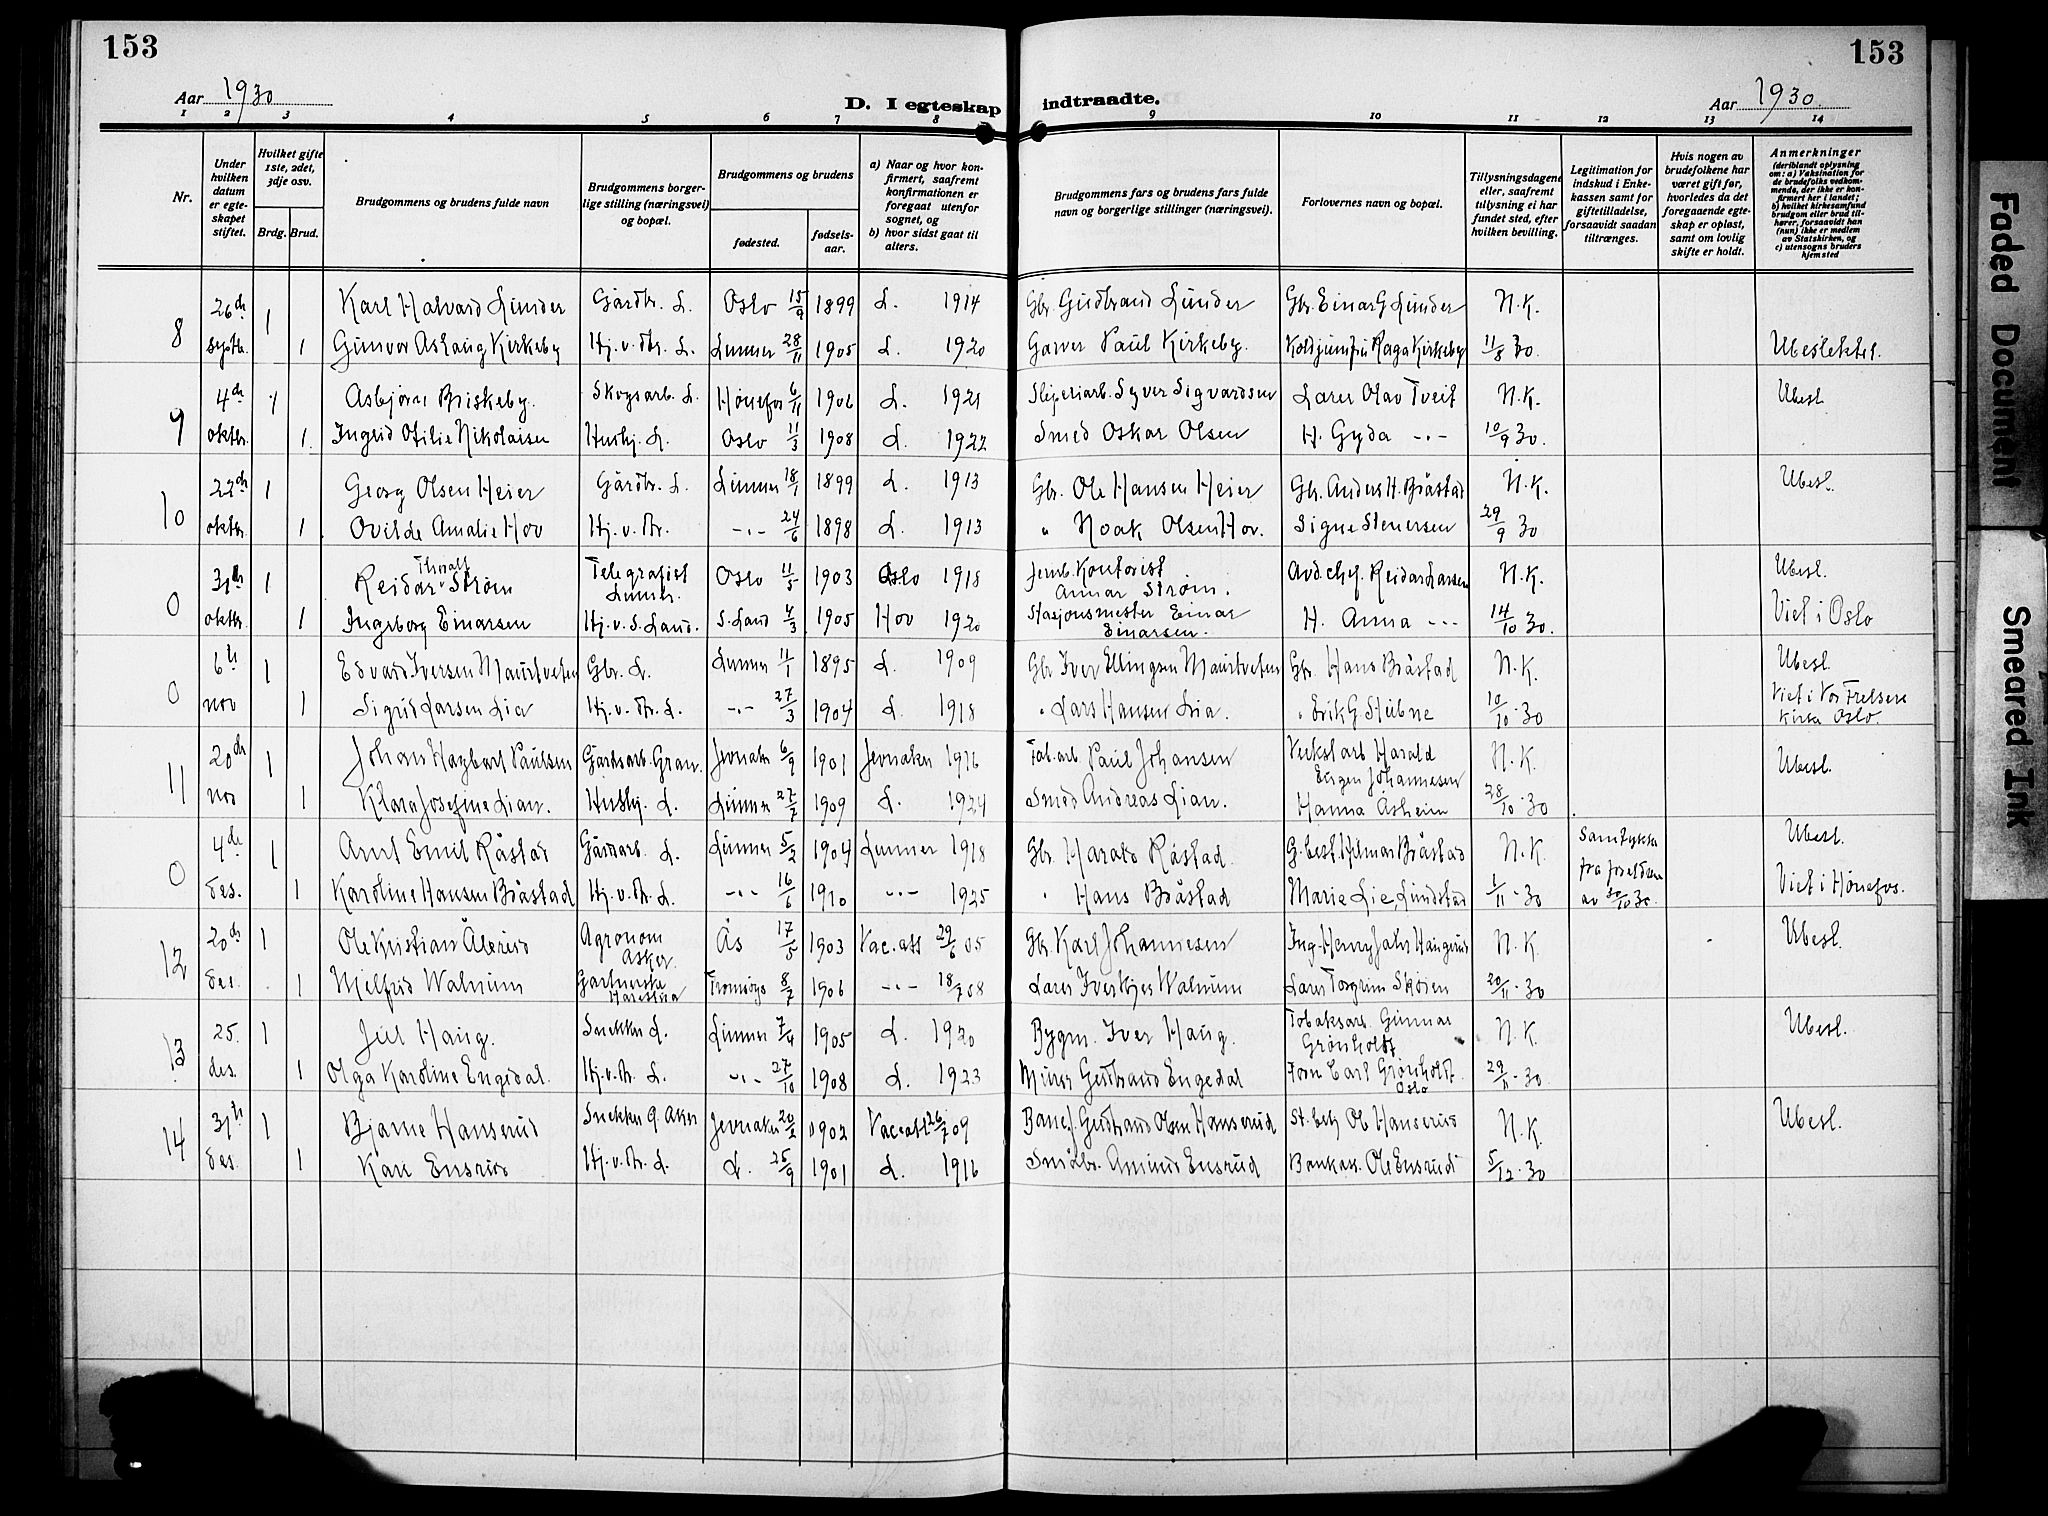 153
153
Aar 1930
D. I egteskap indtraadte.
Aar 1930.
1 2 3 4 5 6 7 8 9 10 11 12 13 14
Nr.
Under hvilken datum er egteskapet stiftet.
Hvilket gifte 1ste, 2det, 3dje osv.
Brdg. Brud.
Brudgommens og brudens fulde navn
Brudgommens borgerlige stilling (næringsvei) og bopæl.
Brudgommens og brudens
fødested.
fødselsaar.
a) Naar og hvor konfirmert, saafremt konfirmationen er foregaat utenfor sognet, og
b) hvor sidst gaat til alters.
Brudgommens fars og brudens fars fulde navn og borgerlige stillinger (næringsvei).
Forlovernes navn og bopæl.
Tillysningsdagene eller, saafremt tillysning ei har fundet sted, efter hvilken bevilling.
Legitimation for indskud i Enkekassen samt for giftetilladelse, forsaavidt saadan tiltrænges.
Hvis nogen av brudefolkene har været gift før, hvorledes da det foregaaende egteskap er opløst, samt om lovlig skifte er holdt.
Anmerkninger
(deriblandt oplysning om: a) Vaksination for de brudefolks vedkommende, der ikke er konfirmert her i landet; b) hvilket kirkesamfund brudgom eller brud tilhører, forsaavidt han (hun) ikke er medlem av Statskirken, og c) utensogns bruders hjemsted
8 26de 1 Karl Halvard Lunder Gårdbr. L. Oslo 15/9 1899 L. 1914 Gbr. Gudbrand Lunder Gbr. Einar G Lunder N.K.
septb. 1 Gunvor Aslaug Kirkeby Hj.v. Br. L. Lunner 28/11 1905 L. 1920 Garver Paul Kirkeby. Raga Kirkeby 11/8 30. Ubeslektet.
9 4de 1 Asbjørn Briskeby. Skogsarb. L. Hønefos 6/11 1906 L. 1921 Sliperiarb. Syver Sigvardsen Lærer Olav Tveit N.K. Ubesl
oktbr. 1. Ingrid Otilie Nikolaisen Hushj. L. Oslo 11/3 1908 L. 1922 Smed Oskar Olsen H. Gyda -"- 10/9 30.
10 22de 1 Georg Olsen Heier Gårdbr. L. Lunner 18/1 1899 L. 1913 Gbr. Ole Hansen Heier Gbr. Anders H. Bråstad N.K. Ubesl.
oktbr. 1 Ovilde Amalie Hov Hj.v. Br. -"- 24/6 1898 L. 1913 " Noak Olsen Hov. Signe Stenersen 29/9 30
0 31te 1 Reidar Strøm Telegrafist Lunner. Oslo 11/5 1903 Oslo 1918 Jernb. Kontorist Annar Strøm. Avd.chef. Reidar Larsen N.K. Ubesl.
oktbr. 1 Ingeborg Einarsen Hj.v. S. Land. S. Land 4/3 1905 Hov 1920 Stasjonsmester Einar Einarsen. H. Anna -"- 14/10 30. Viet i Oslo
0 6te 1 Edvard Iversen Maurtveten Gbr. L. Lunner 11/1 1895 L. 1909 Gbr Iver Ellingsen Maurtveten Gbr. Hans Bråstad N.K. Ubesl.
nov 1 Sigrid Larsen Lia Hj.v. Br. L. -"- 27/3 1904 L. 1918 " Lars Hansen Lia. " Erik G Stubne 10/10 30 Viet i Vor Frelsers Kirke Oslo.
11 20de 1 Johan Hagbart Paulsen Gårdsarb. Gran. Jevnaker 6/9 1901 Jevnaker 1916 Fab.arb. Paul Johansen Verkst.arb Harald Eugen Johannesen N.K. Ubesl.
nov 1 Klara Josefine Lian. Hushj. L. Lunner 27/7 1909 L. 1924 Smed Andreas Lian. Hanna Åsheim 28/10 30
0 4de 1 Arnt Emil Råstad Gårdarb. L. Lunner 5/2 1904 Lunner 1918 Gbr. Harald Råstad. G.best. Hilmar Bråstad N.K. Samtykke fra foreldrene av 30/10 30. Ubesl.
des. 1 Karoline Hansen Bråstad Hj.v. Br. L. -"- 16/6 1910 -"- 1925 " Hans Bråstad Marie Lie, Lundstad 1/11 30 Viet i Hønefos.
12 20de 1 Ole Kristian Åbrud Agronom Asker. Ås 17/5 1903 Vac.att 29/6 05 Gbr. Karl Johannesen Ing. Henry Jahr Haugerud N.K. Ubesl.
des. 1 Milfrid Walnum Gartnerske Harestua Tromsøys 8/7 1906 -"- 18/7 08 Lærer Iver Walnum Lærer Torgrim Skøien 20/11 30
13 25. 1 Jul Haug. Snekker L. Lunner 7/4 1905 L. 1920 Bygm. Iver Haug. Tobaksarb. Gunnar Grønholdt N.K. Ubesl.
des. 1 Olga Karoline Engedal. Hj.v. Br. L. -"- 27/10 1908 L. 1923 Murer Gudbrand Engedal Form Carl Grønholdt. Oslo 29/11 30
14 31te 1 Bjarne Hanserud Snekker Ø Aker Jevnaker 20/2 1902 Vac.att 26/7 09 Banef. Gudbrand Olsen Hanserud St.betj Ole Hanserud N.K. Ubesl.
des. 1 Kari Ensrud Hj.v. Br. L. L. 25/9 1901 L. 1916 Småbr. Amund Ensrud Bankkas. Ole Ensrud 5/12 30
Faded Document
Smeared Ink